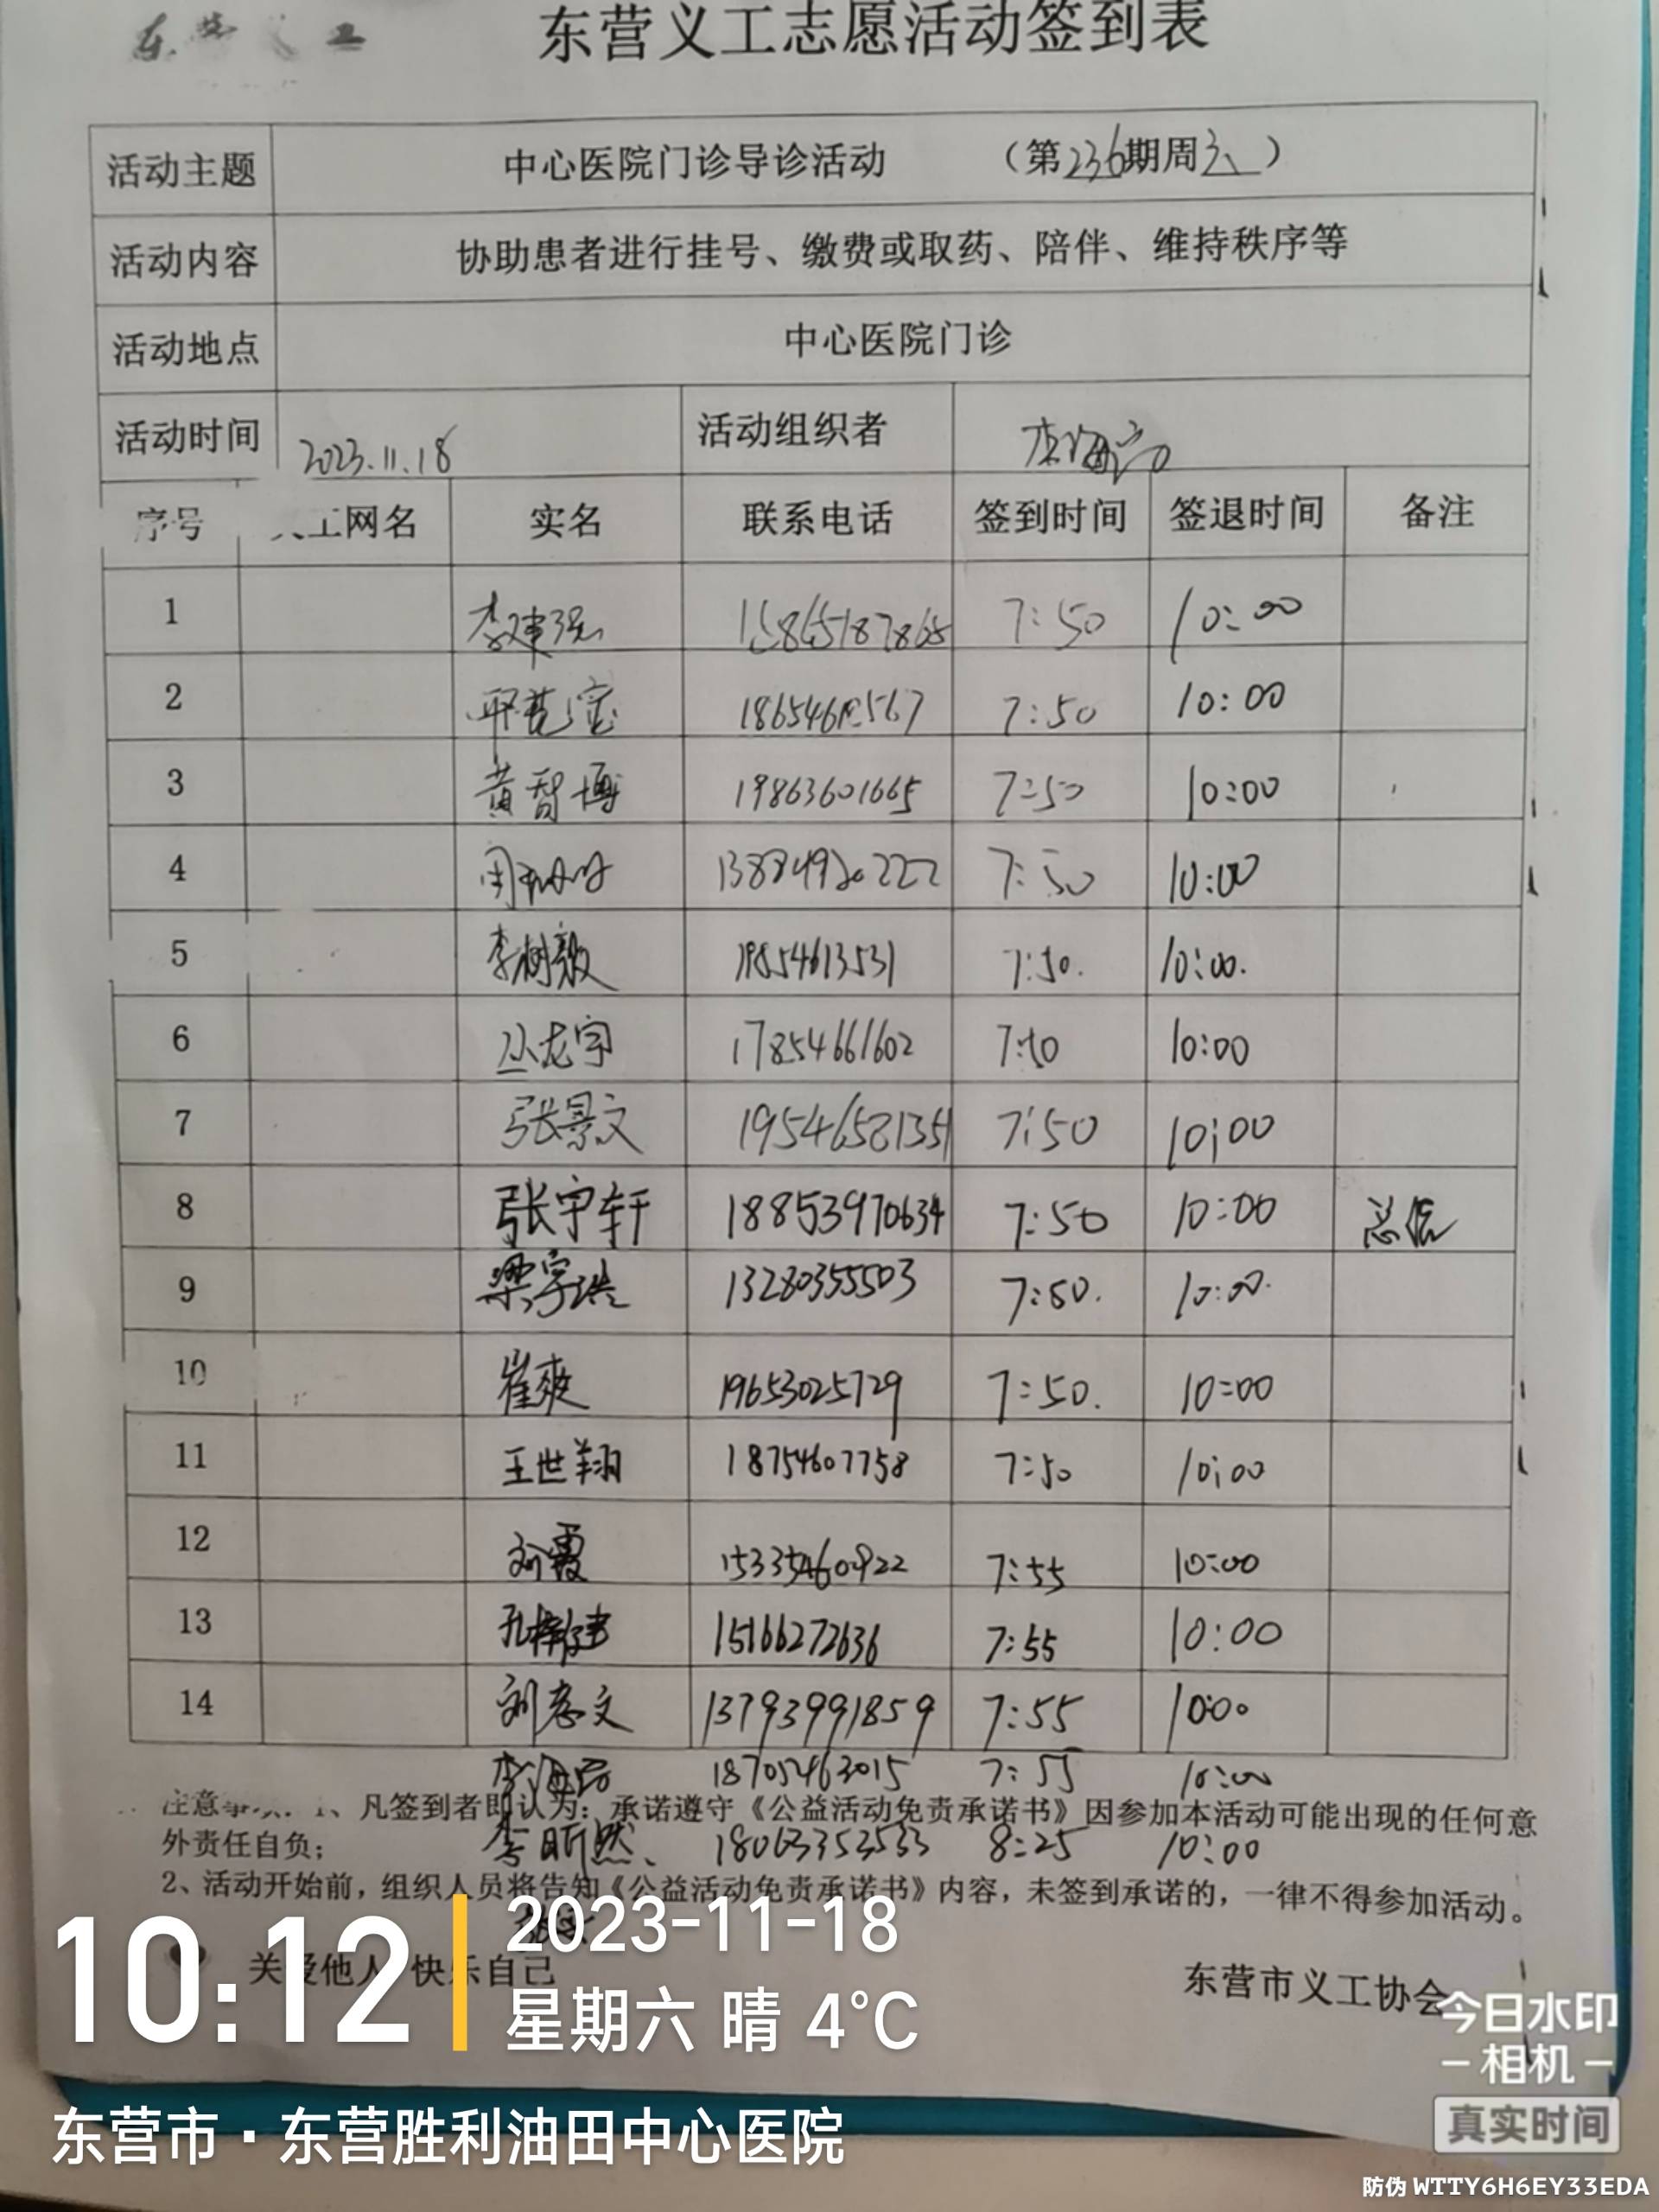 东营义工
东营义工志愿活动签到表
活动主题 中心医院门诊导诊活动 （第236期周六）
活动内容 协助患者进行挂号、缴费或取药、陪伴、维持秩序等
活动地点 中心医院门诊
活动时间 2023.11.18 活动组织者
序号 工网名 实名 联系电话 签到时间 签退时间 备注
1 李建强 15865187865 7:50 10:00
2 7:50 10:00
3 黄智博 19863601665 7:50 10:00
4 13884920222 7:50 10:00
5 李树毅 19854613531 7:50. 10:00.
6 丛龙宇 17854661602 7:50 10:00
7 张景文 19546521351 7:50 10:00
8 张宇轩 18853970634 7:50 10:00
9 梁宇浩 13280355503 7:50. 10:00.
10 崔爽 19653025729 7:50. 10:00
11 王世翔 18754607758 7:50 10:00
12 刘霞 15335460922 7:55 10:00
13 15166272636 7:55 10:00
14 刘志文 13793991859 7:55 10:00
18705463015 7:55 10:00
注意事项：1、凡签到者即认为：承诺遵守《公益活动免责承诺书》因参加本活动可能出现的任何意
外责任自负；
李昕然、 18063353533 8:25 10:00
2、活动开始前，组织人员将告知《公益活动免责承诺书》内容，未签到承诺的，一律不得参加活动。
关爱他人 快乐自己
东营市义工协会
10:12
2023-11-18
星期六 晴 4°C
东营市·东营胜利油田中心医院
今日水印
相机
真实时间
防伪 WTTY6H6EY33EDA